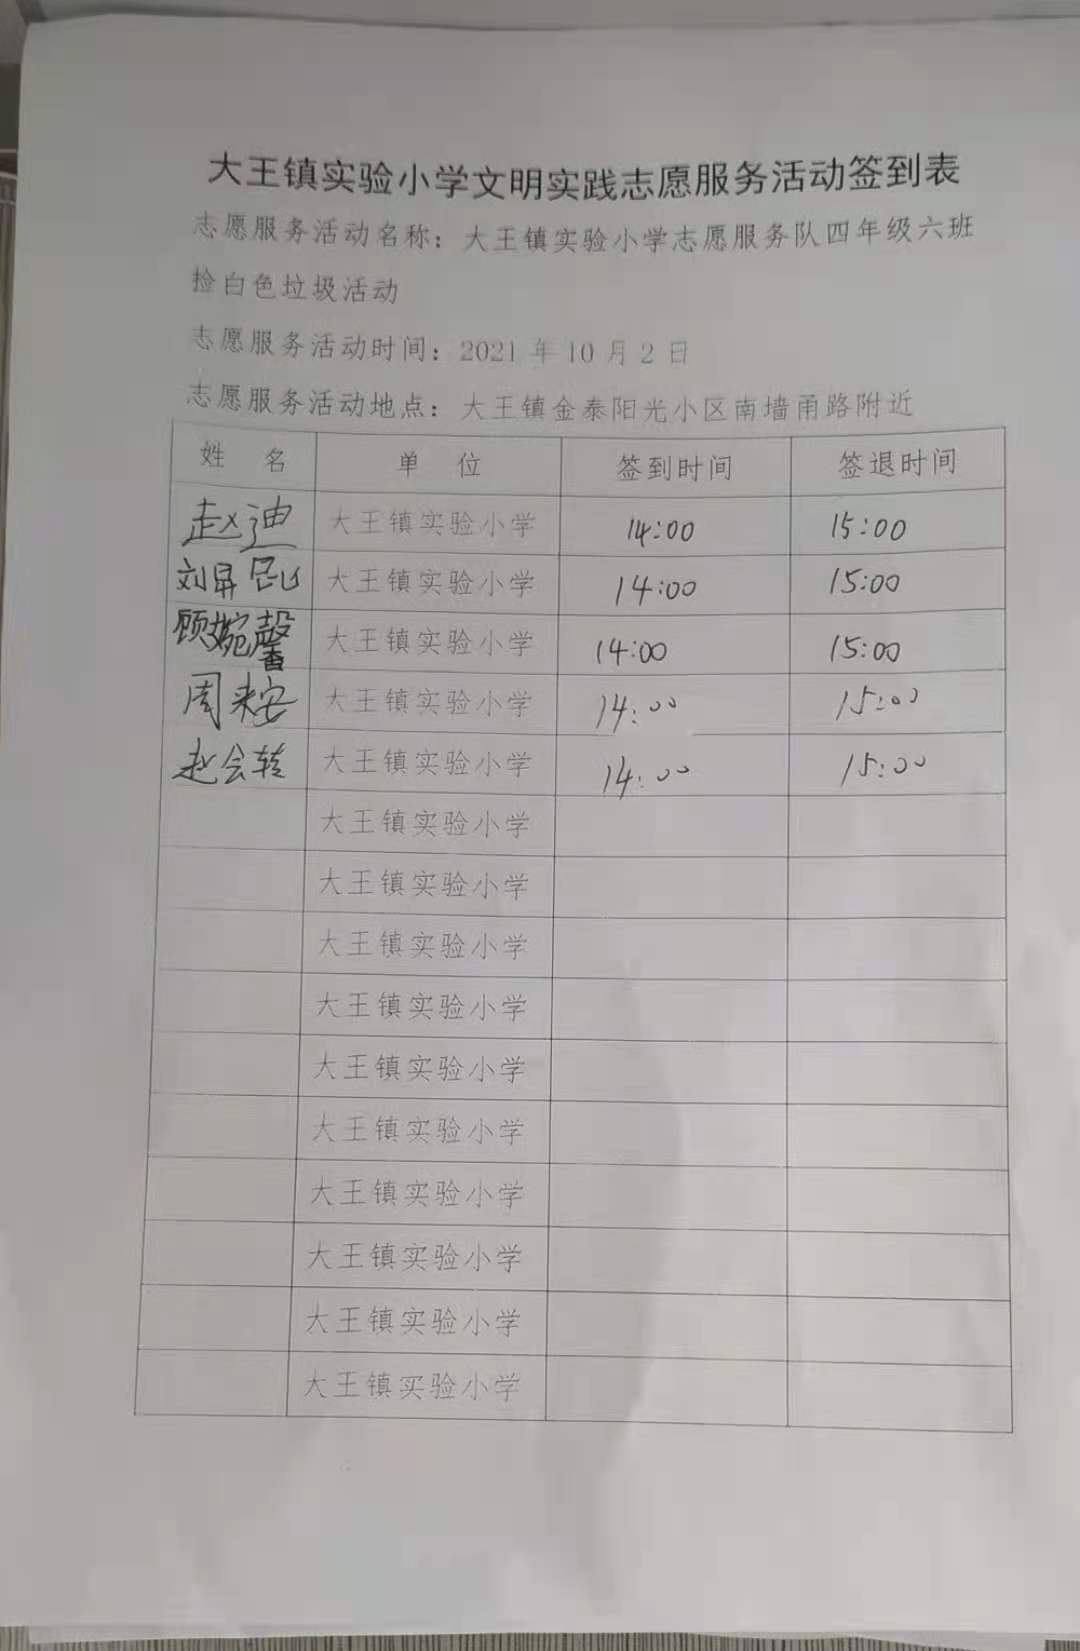 大王镇实验小学文明实践志愿服务活动签到表
志愿服务活动名称：大王镇实验小学志愿服务队四年级六班
捡白色垃圾活动
志愿服务活动时间：2021 年 10 月 2 日
志愿服务活动地点：大王镇金泰阳光小区南墙甬路附近
姓 名 单 位 签到时间 签退时间
赵迪 大王镇实验小学 14:00 15:00
刘昇昆 大王镇实验小学 14:00 15:00
顾婉馨 大王镇实验小学 14:00 15:00
周来安 大王镇实验小学 14:00 15:00
赵会转 大王镇实验小学 14:00 15:00
大王镇实验小学
大王镇实验小学
大王镇实验小学
大王镇实验小学
大王镇实验小学
大王镇实验小学
大王镇实验小学
大王镇实验小学
大王镇实验小学
大王镇实验小学